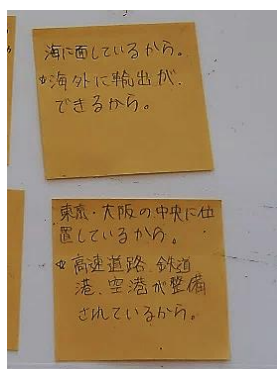 海に面しているから。
☆海外に輸出が、
できるから。
東京・大阪の中央に位
置しているから。
☆高速道路、鉄道
港、空港が整備
されているから。